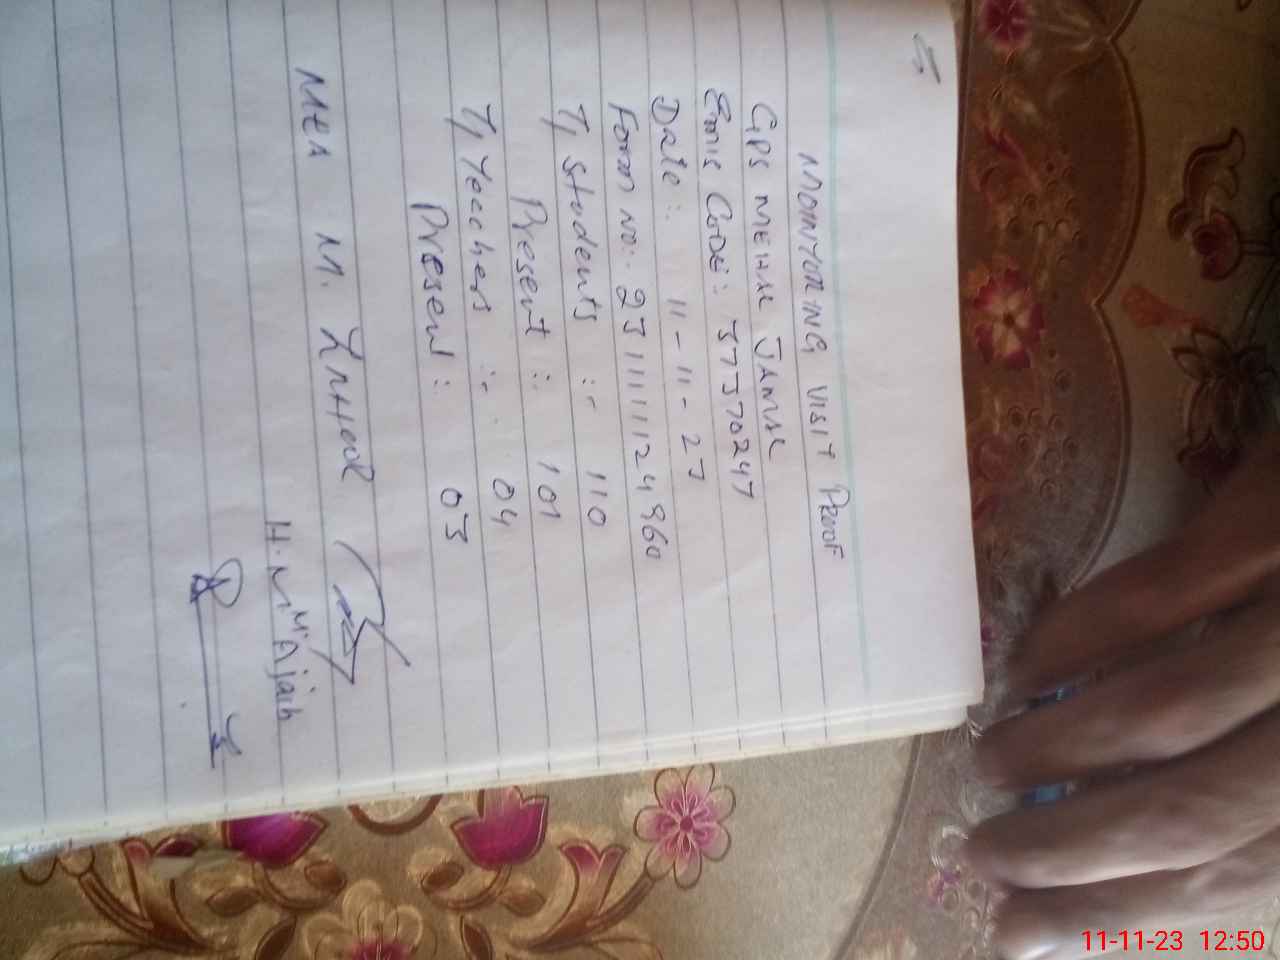 MOINYORING VISIT PROOF
GPS MEHAR JAMAL
EMIS CODE: 37370247
Date: 11-11-23
Form No:- 231111124960
T/ Students :- 110
Present :- 101
T/ Teachers :- 04
Present : 03
MEA M.
H.M M. Ajaib
11-11-23 12:50